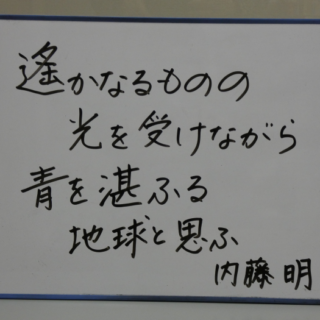 遙かなるものの
光を受けながら
青を湛ふる
地球と思ふ
内藤明